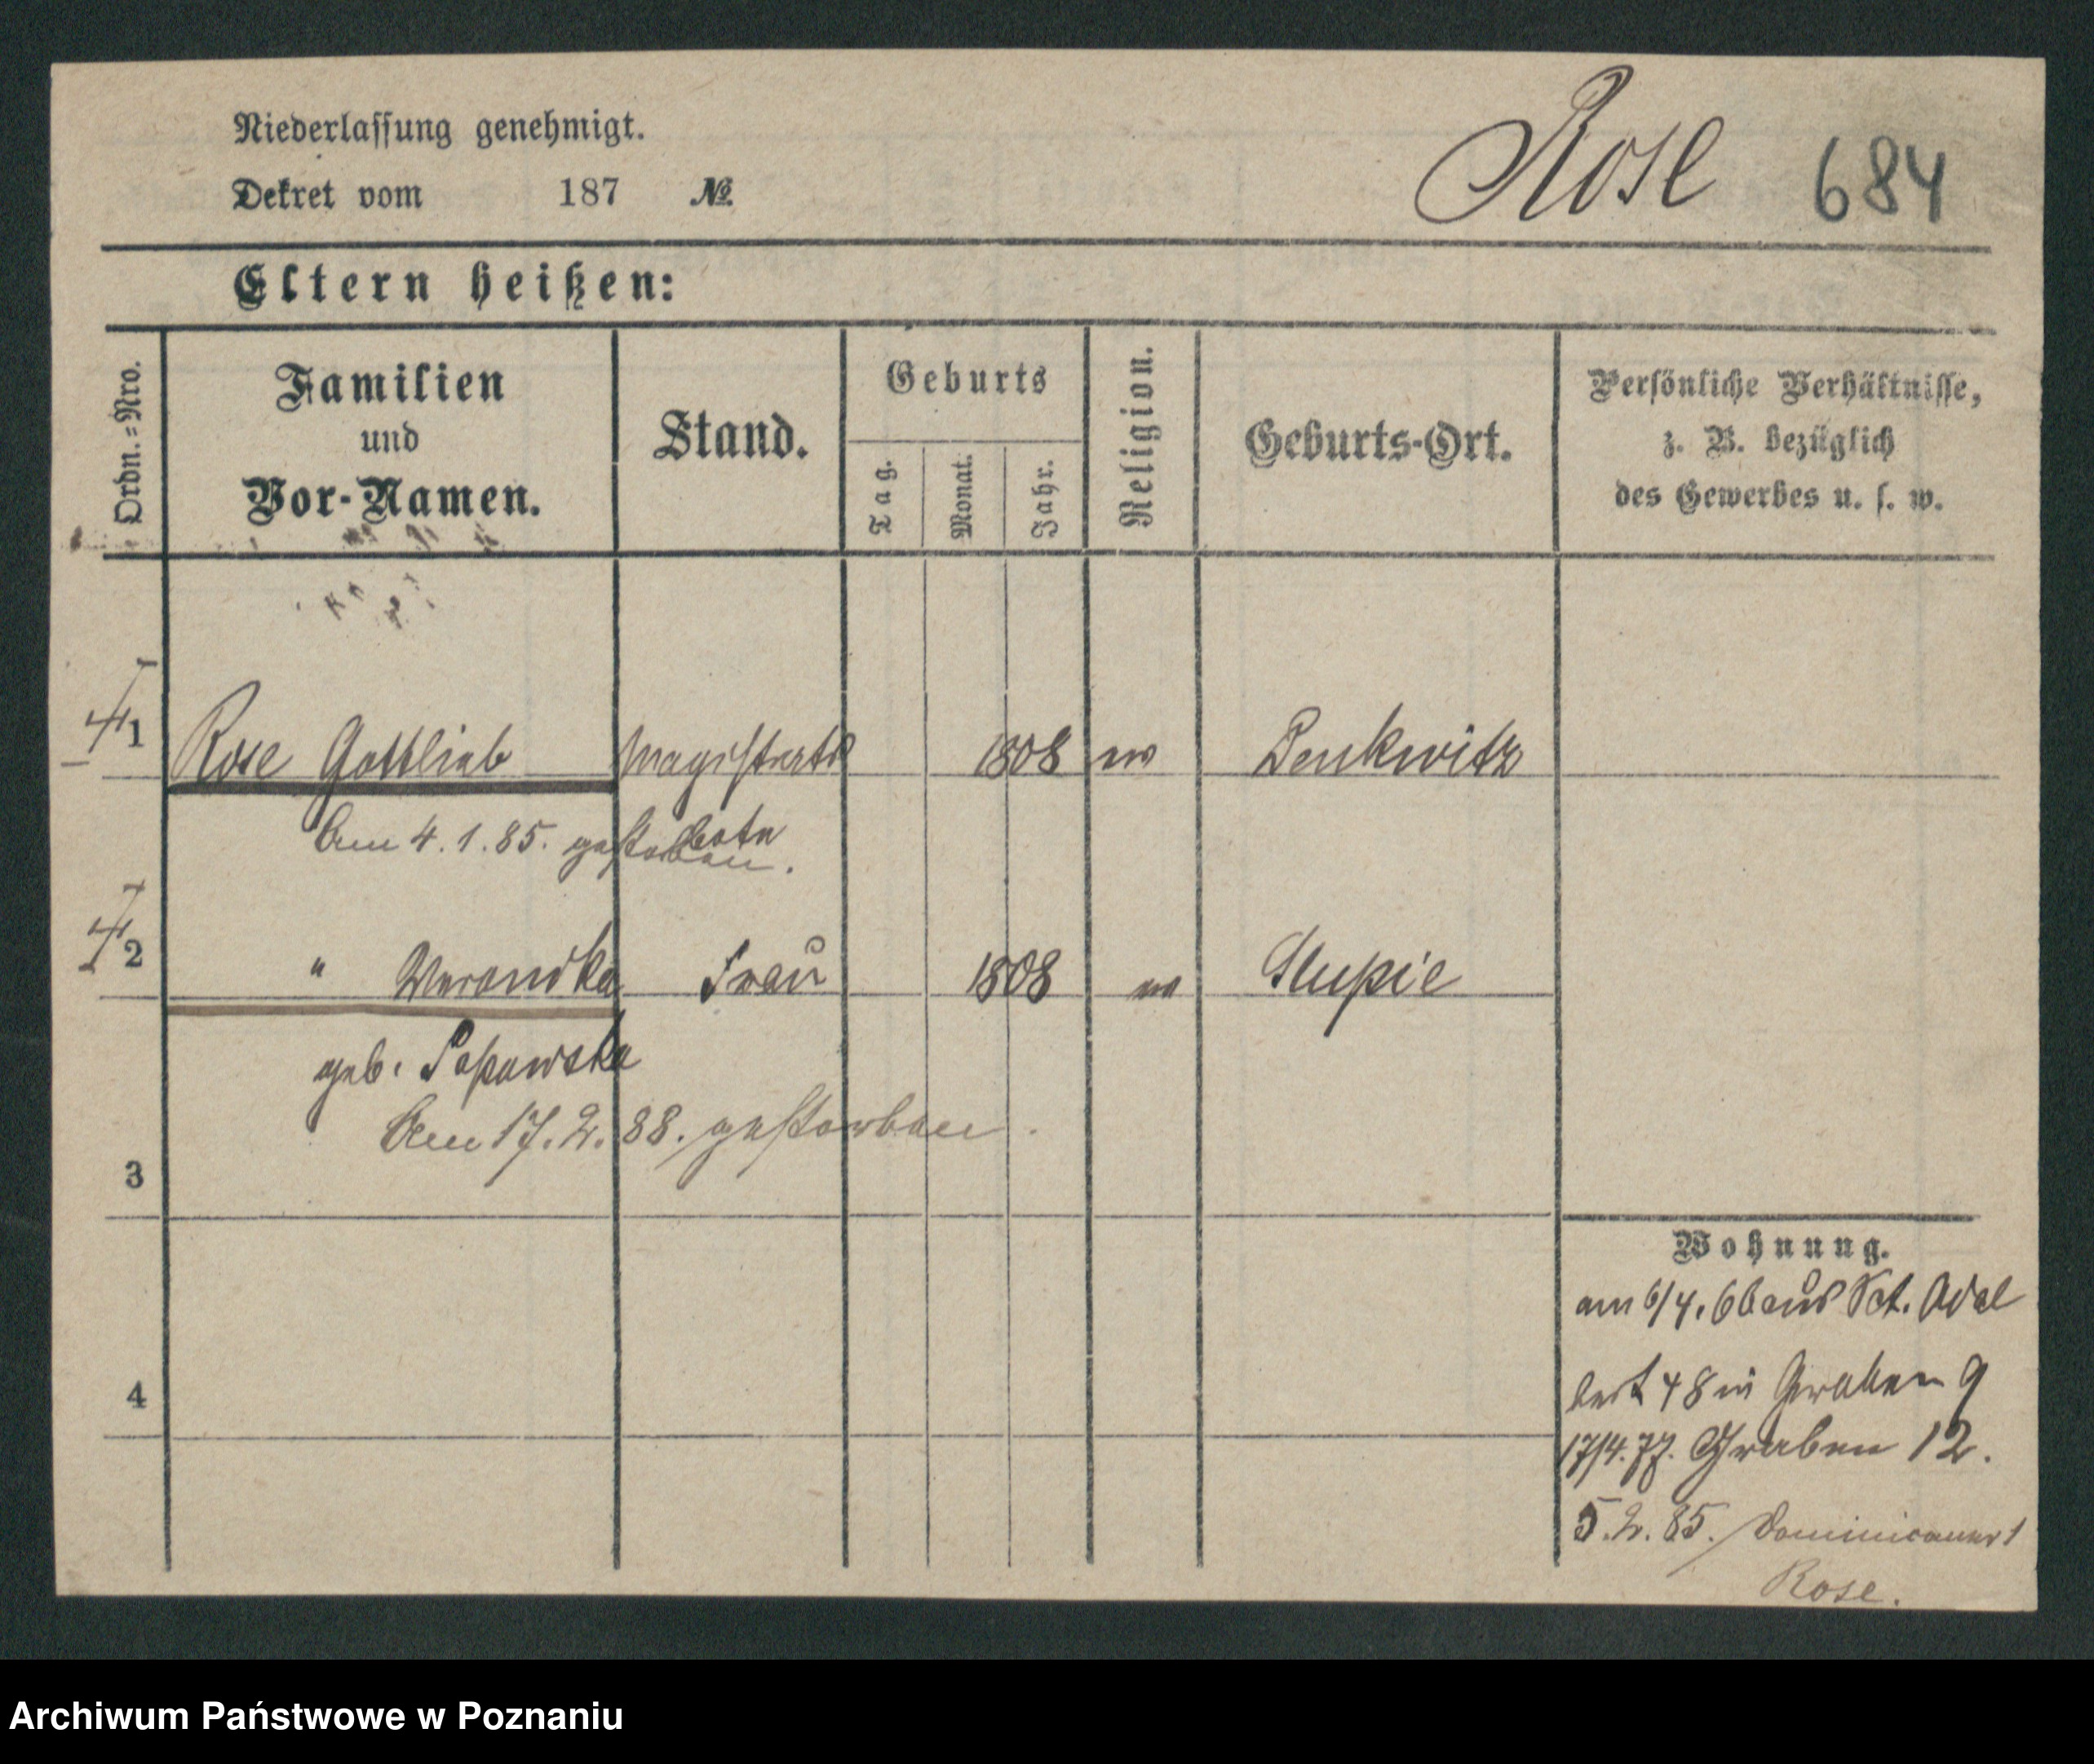 Niederlassung genehmigt.
Rose 684
Dekret vom 187 №
Eltern heißen:
Ordn.-Nro.
Familien
und
Vor-Namen.
Stand.
Geburts
Tag.
Monat.
Jahr.
Religion.
Geburts-Ort.
Persönliche Verhältnisse,
z. B. bezüglich
des Gewerbes u. s. w.
1 Rose Gottlieb Magistrats 1808 Denkwitz
bote
Am 4.1.85. gestorben.
2 " Weronika Frau 1808 Slupie
geb. Popowska
Am 17.2.88. gestorben.
3
4
Wohnung.
am 6/4.66 aus Sct. Adal
bert 48 in Graben 9
17/4.77. Graben 12.
5.2.85. Dominicaner 1
Rose.
Archiwum Państwowe w Poznaniu